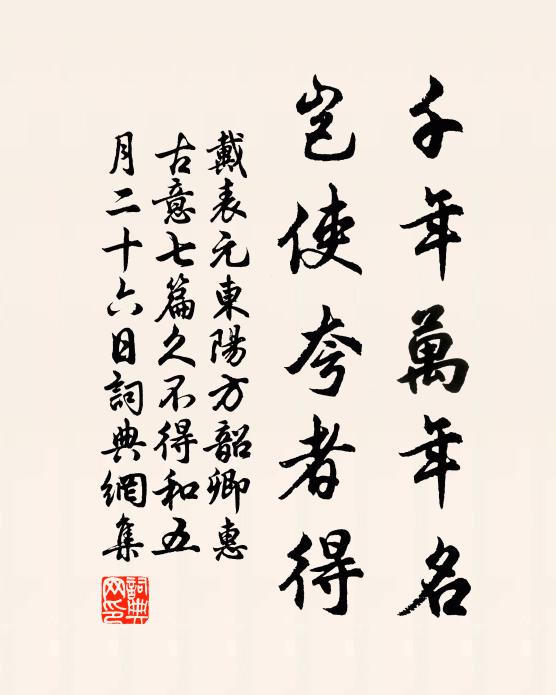 千年萬年名
豈使夸者得
戴表元東陽方韶卿惠
古意七篇久不得和五
月二十六日詞典網集
詞典网印